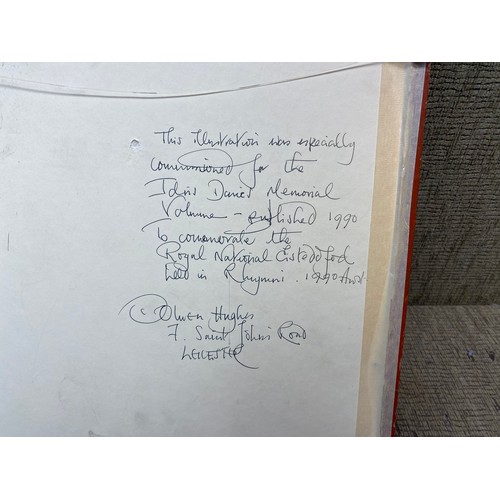 This illustration was especially
commissioned for the
Idris Davies Memorial
Volume - published 1990
To comemorate the
Royal National Eisteddfod
held in Rhymni. 1990
© Olwen Hughes
7. Saint John's Road
LEICESTER